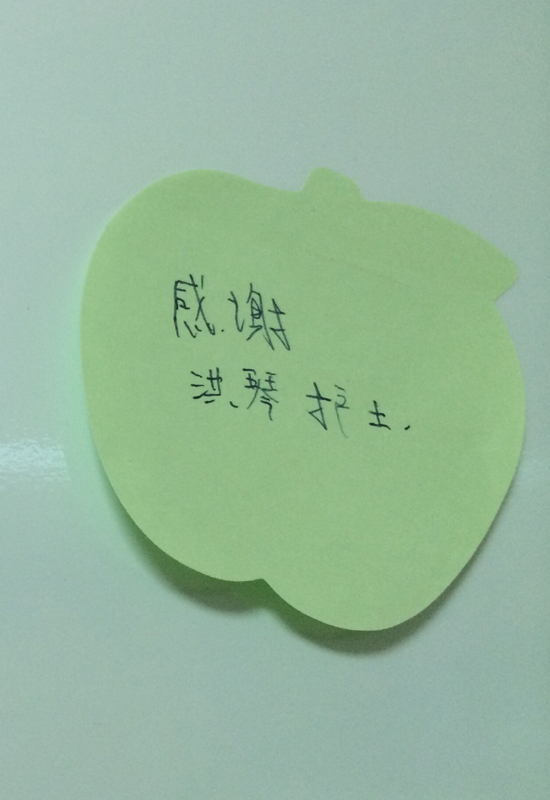 感谢
洪琴护士.